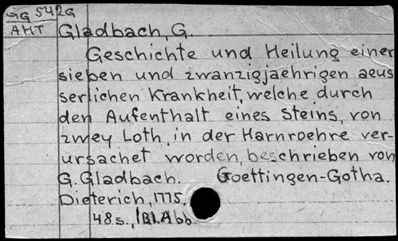 GG 542G
AHT Gladbach, G.
Geschichte und Heilung einer
sieben und zwanzigjaehrigen aeus
serlichen Krankheit, welche durch
den Aufenthalt eines Steins, von
zwey Loth, in der Harnroehre ver-
ursachet worden, beschrieben von
G. Gladbach. Goettingen-Gotha.
Dieterich, 1775.
48 s., 1 Bl. Abb.